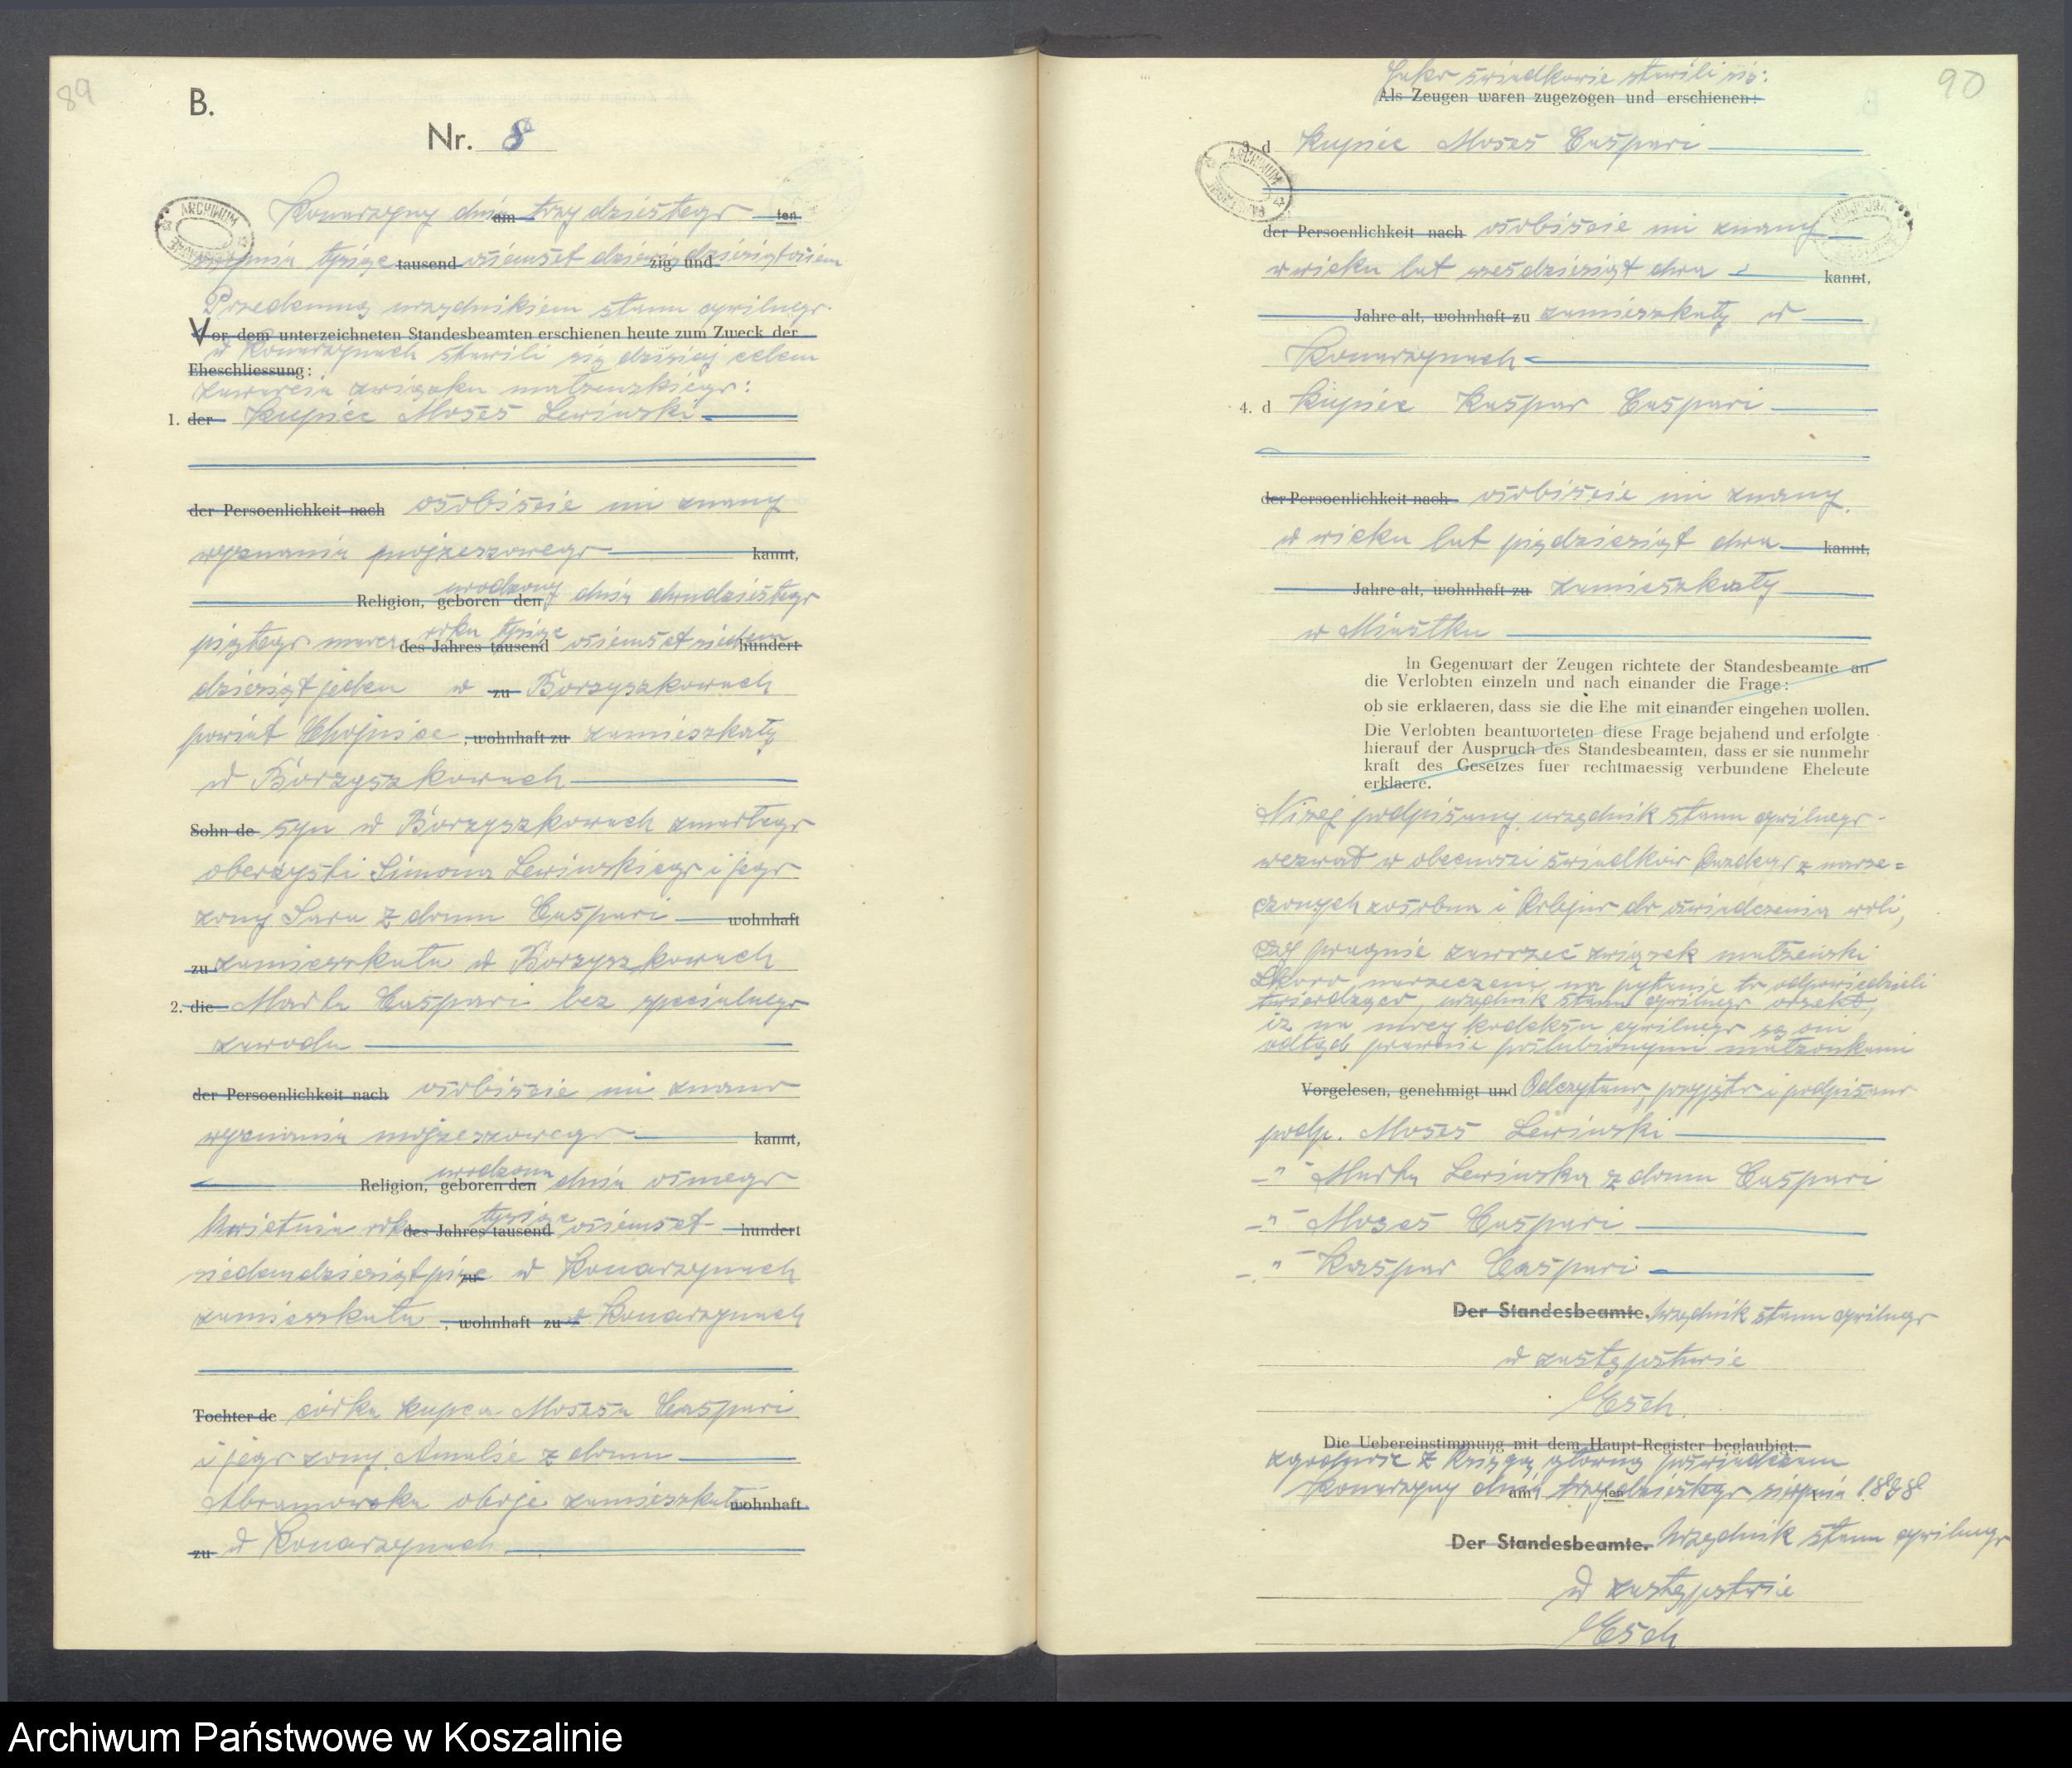 89
B.
Nr. 8
ARCHIWUM
Konarzyny dnia am trzydziestego ten
sierpnia tysiąc tausend ośiemset dziewiędziesiąt ośiem zig und
Przedemną urzędnikiem stanu cywilnego
Vor dem unterzeichneten Standesbeamten erschienen heute zum Zweck der
w Konarzynach stawili się dzisiaj celem
Eheschliessung:
zawarcia związku małżenskiego:
1. der kupiec Moses Lewinski
der Persoenlichkeit nach osobiście mi znany
wyznania mojżeszowego kannt,
urodzony
Religion, geboren den dnia dwudziestego
piątego marca roku tysiąc des Jahres tausend ośiemset siedem hundert
dziesiąt jeden w zu Borzyszkowach
powiat Chojnice, wohnhaft zu zamieszkały
w Borzyszkowach
Sohn de syn w Borzyszkowach zmarłego
oberżysti Simona Lewinskiego i jego
żony Sara z domu Caspari wohnhaft
zu zamieszkała w Borzyszkowach
2. die Marta Caspari bez specialnego
zawodu
der Persoenlichkeit nach osobiście mi znana
wyznania mojżeszowego kannt,
urodzona
Religion, geboren den dnia ośmego
kwietnia roku des Jahres tausend tysiąc ośiemset hundert
siedemdziesiąt pięc zu w Konarzynach
zamieszkała, wohnhaft zu w Konarzynach
Tochter de córka kupca Mosesa Caspari
i jego żony Amalie z domu
Abramowska oboje zamieszkali wohnhaft
zu w Konarzynach
90
Jako świadkowie stawili się:
Als Zeugen waren zugezogen und erschienen:
3. d kupiec Moses Caspari
ARCHIWUM
der Persoenlichkeit nach osobiście mi znany
w wieku lat sześdziesiąt dwa kannt,
Jahre alt, wohnhaft zu zamieszkały w
Konarzynach
4. d kupiec Kaspar Caspari
der Persoenlichkeit nach osobiście mi znany
w wieku lat piędziesiąt dwa kannt,
Jahre alt, wohnhaft zu zamieszkały
w Miastku
In Gegenwart der Zeugen richtete der Standesbeamte an
die Verlobten einzeln und nach einander die Frage:
ob sie erklaeren, dass sie die Ehe mit einander eingehen wollen.
Die Verlobten beantworteten diese Frage bejahend und erfolgte
hierauf der Auspruch des Standesbeamten, dass er sie nunmehr
kraft des Gesetzes fuer rechtmaessig verbundene Eheleute
erklaere.
Niżej podpisany urzędnik stanu cywilnego
wezwał w obecności świadków każdego z narze=
czonych zosobna i kolejno do oświadczenia woli,
czy pragnie zawrzeć związek małżeński
Skoro narzeczeni na pytanie to odpowiedzieli
twierdząco, urzędnik stanu cywilnego orzekł,
iż na mocy kodeksu cywilnego są oni
odtąd prawnie poślubionymi małżonkami
Vorgelesen, genehmigt und Odczytano, przyjęto i podpisano
podp. Moses Lewinski
-"- Marta Lewinska z domu Caspari
-"- Moses Caspari
-"- Kaspar Caspari
Der Standesbeamte. Urzędnik stanu cywilnego
w zastępstwie
Esch.
Die Uebereinstimmung mit dem Haupt-Register beglaubigt.
zgodnie z Księgą główną poświadczam
Konarzyny dnia am trzydziestego ten sierpnia 1898
Der Standesbeamte. Urzędnik stanu cywilnego
w zastępstwie
Esch
Archiwum Państwowe w Koszalinie